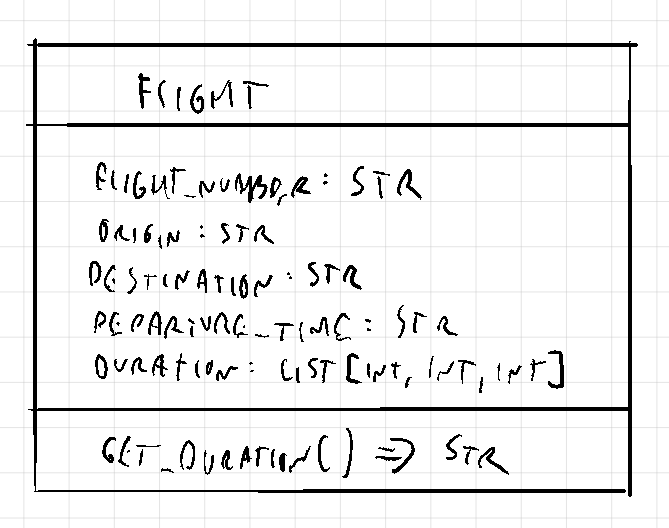 FLIGHT
FLIGHT_NUMBER: STR
ORIGIN: STR
DESTINATION: STR
DEPARTURE_TIME: STR
DURATION: LIST[INT, INT, INT]
GET_DURATION() => STR